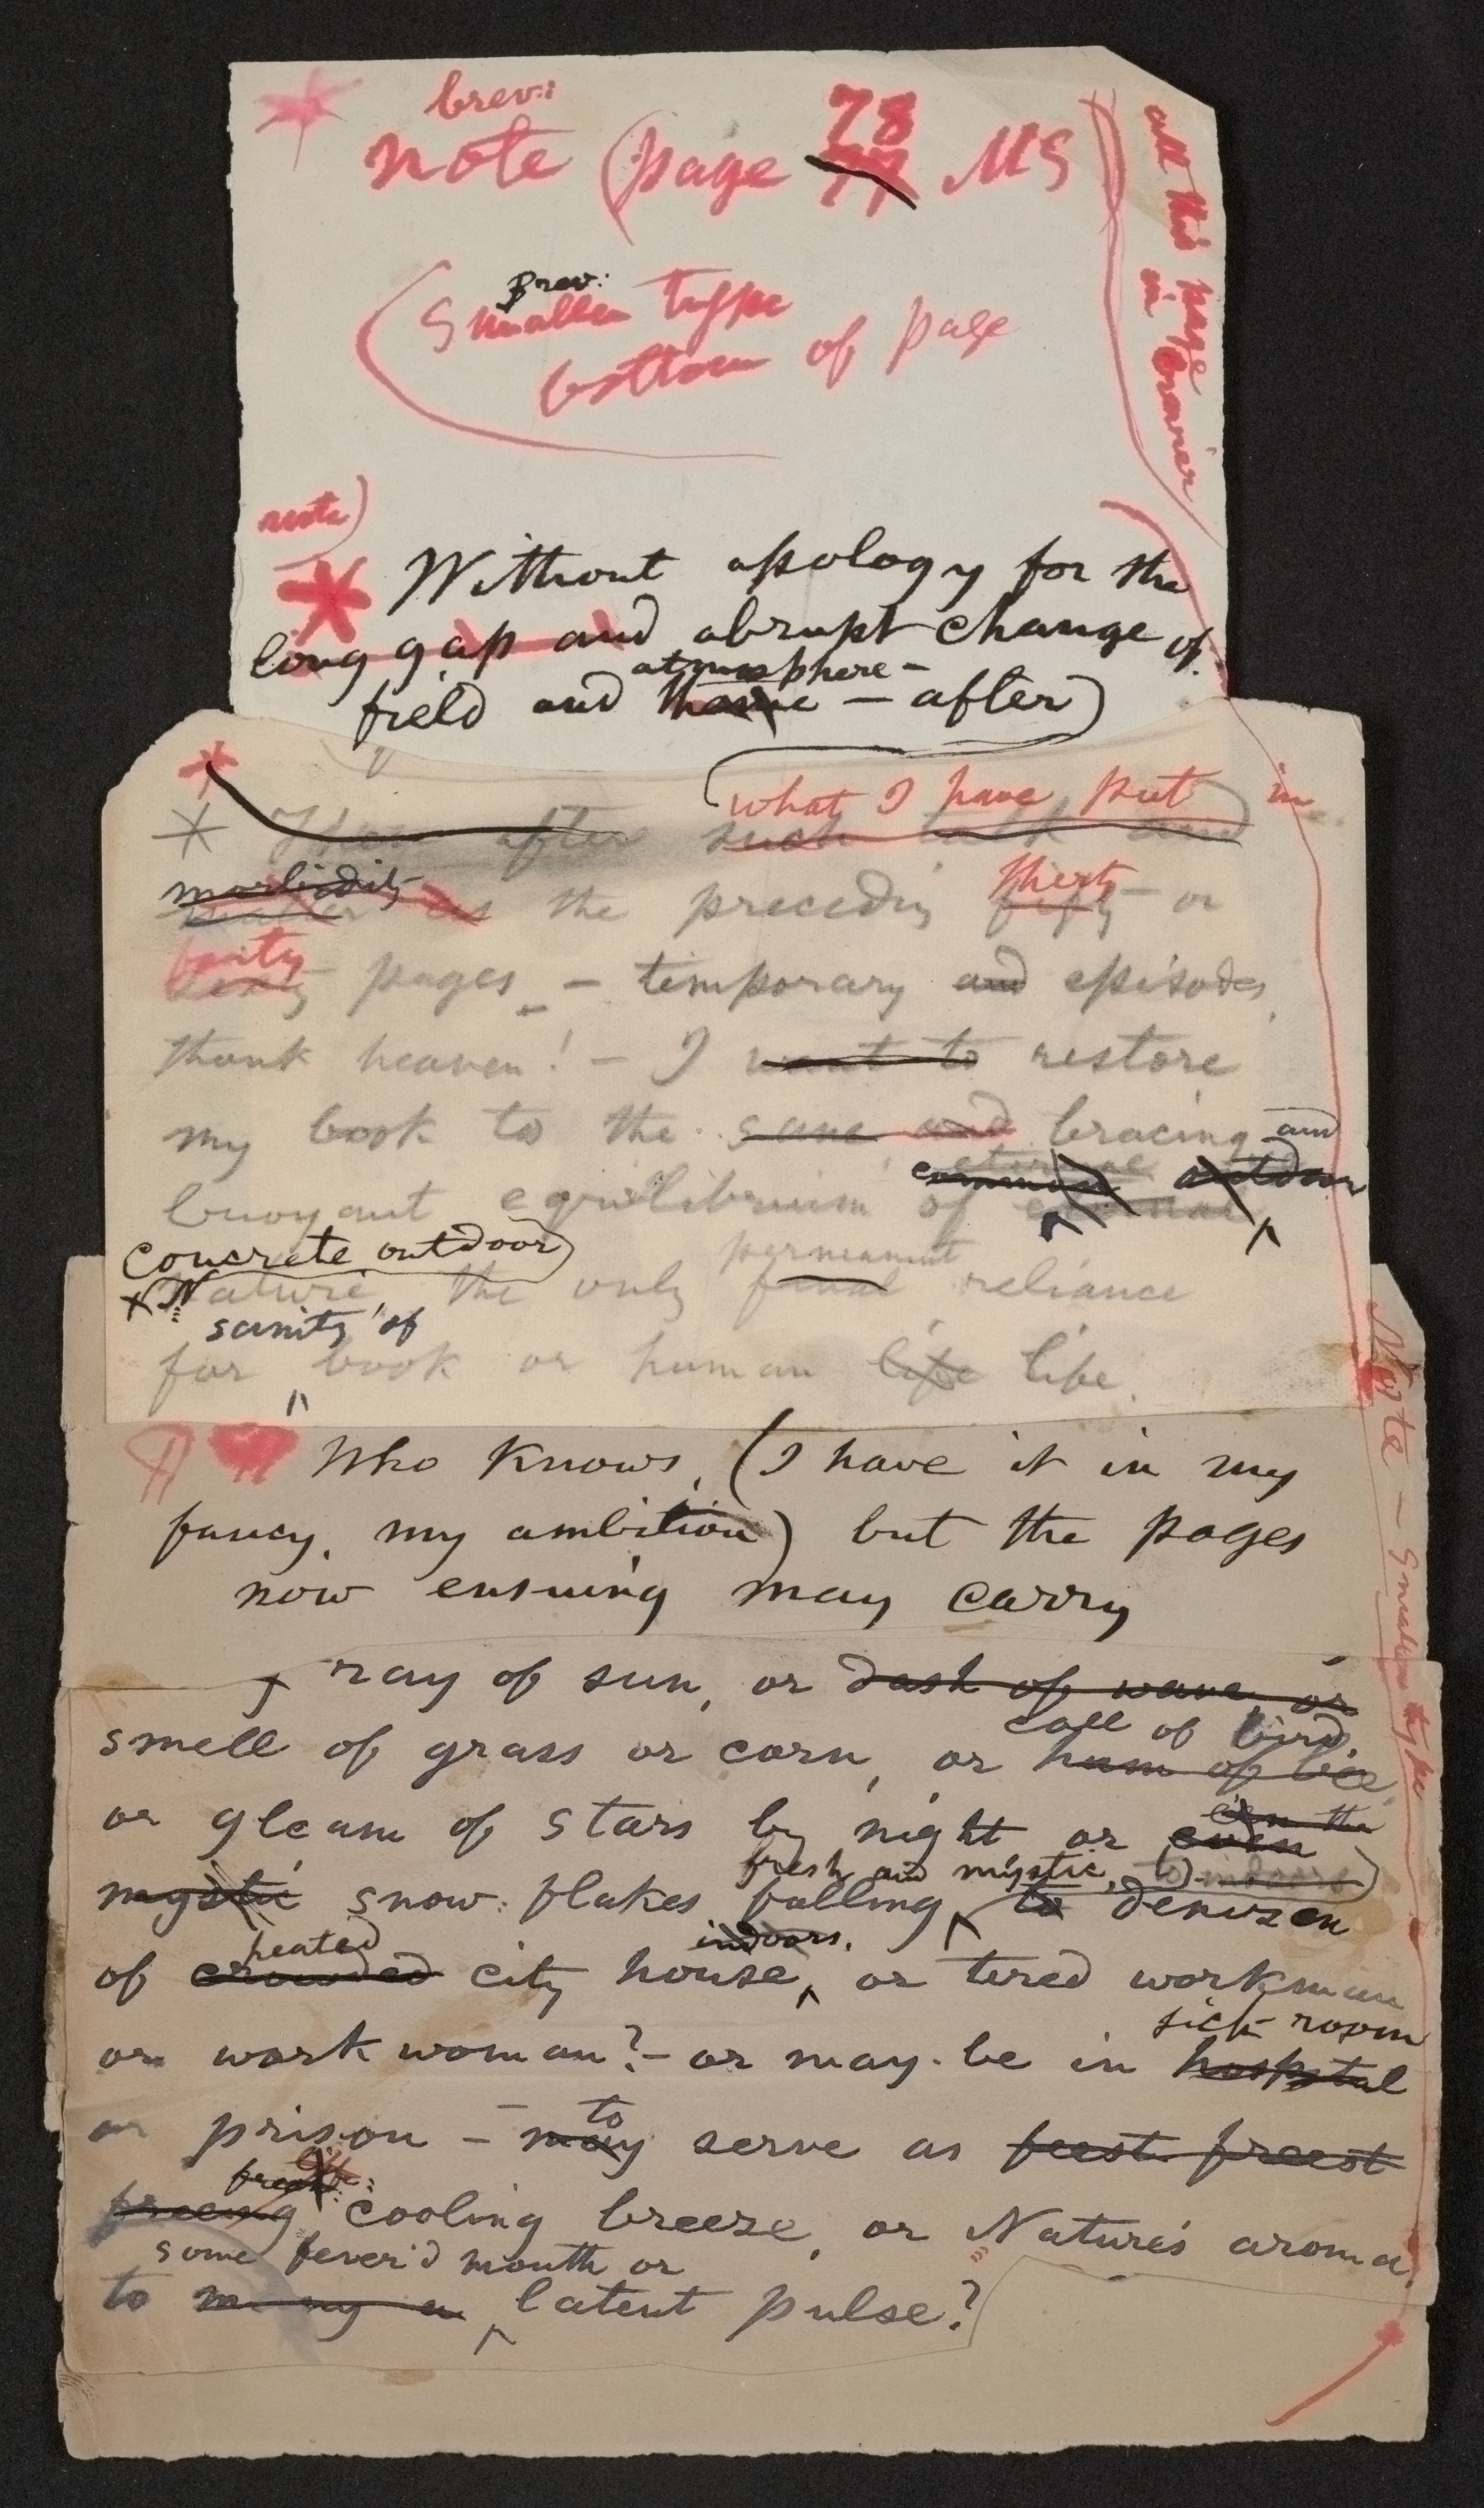 brev:
note (page 78
77 MS
all this page
in brevier
Brev:
Smaller type
bottom of page
note)
Without apology for the
long gap and abrupt change of
atmosphere –
field and theme – after)
what I have put in
after such talk and
morbidity
as the preceding fifty – or
thirty
forty
sixty pages – temporary and episodes,
thank heaven! – I want to restore
my book to the sane and bracing and
eternal
common outdoor
buoyant equilibrium of eternal
concrete outdoor)
permanent
Nature, the only final reliance
sanity of
for book or human life life.
Note – Smaller type
Who knows, (I have it in my
fancy, my ambition) but the pages
now ensuing may carry
ray of sun, or dash of wave, or
smell of grass or corn, or hum of bee,
call of bird,
or gleam of stars by night or even
e'en the
fresh and mystic, to indoors
mystic snow-flakes falling to denizen
heated indoors.
of crowded city house, or tired workman
or workwoman? – or may-be in hospital
sick room
to
or prison – may serve as feest freest
fresh
freeing cooling breeze, or Nature's aroma,
some fever'd mouth or
to many a latent pulse?